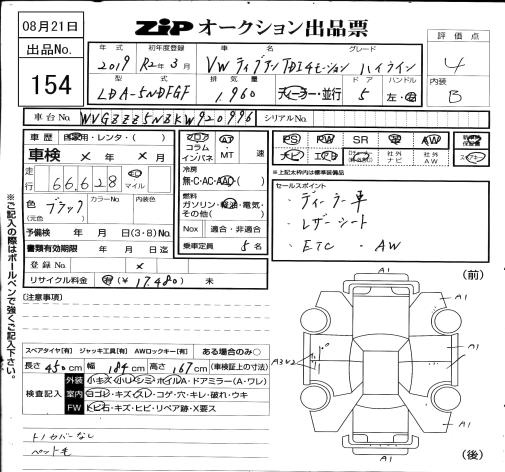 08月21日
ZiP オークション出品票
評価点
出品No.
年式 初年度登録 車名 グレード
2019 R2年3月 VW ティグアン TDI4モーション ハイライン
4
154
型式 排気量 ドア ハンドル
内装
LDA-5NDFGF 1,960 ディーラー・並行 5 左・右
B
車台No. WVGZZZ5NZKW920996 シリアルNo.
車歴 自家用・レンタ・( )
フロア コラム インパネ AT・MT 速
PS PW SR 革 AW
ナビ エアB 社外ナビ 社外AW スマキー
車検 × 年 × 月
冷房 無・C・AC・AAC( )
▲上記メーカーは標準装備品
走行 66,628 km マイル
燃料 ガソリン・軽油・電気・その他( )
セールスポイント
・ディーラー車
色 (元色) ブラック カラーNo. 内装色
・レザーシート
予備検 年 月 日(3・8)No.
Nox 適合・非適合
・ETC ・AW
書類有効期限 年 月 日迄
乗車定員 5 名
登録No. ×
リサイクル料金 済(¥ 17,480 ) 未
(前)
(注意事項)
A1
A1
A1
スペアタイヤ[有] ジャッキ工具[有] AWロックキー[有] ある場合のみ○
A3U2
長さ 450cm 幅 184cm 高さ 167cm (車検証上の寸法)
検査記入
外装 小キズ・小ハンコミ・ホイルA・ドアミラー(A・ワレ)
室内 ヨゴレ・キズ・スレ・コゲ・穴・キレ・破れ・ウキ
FW トビ石・キズ・ヒビ・リペア跡・X要ス
A1
A1
トノカバーなし
ペット毛
(後)
※ご記入の際はボールペンで強くご記入下さい。